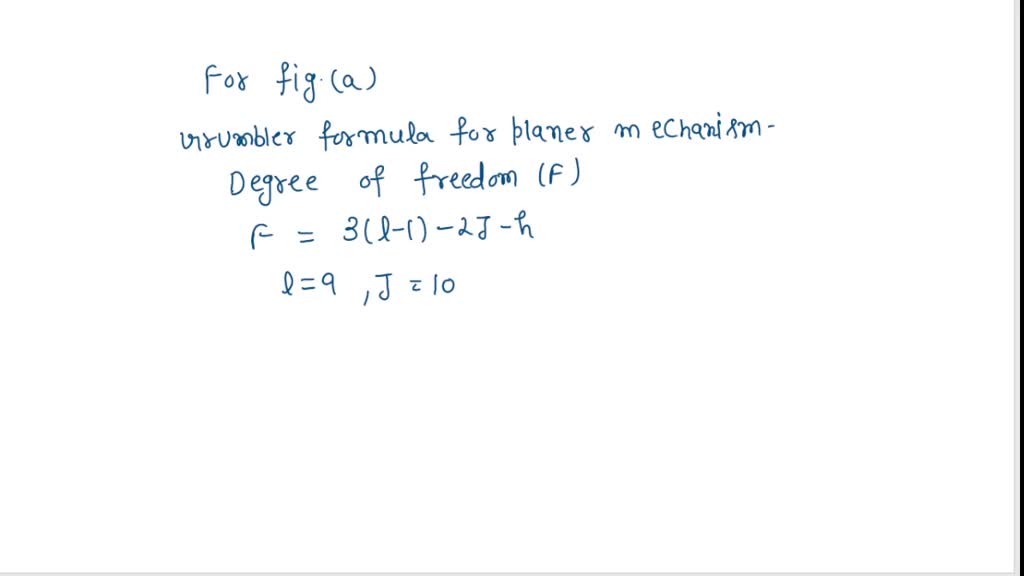 For fig.(a)
formula for planer mechanism-
Degree of freedom (F)
F = 3(l-1) - 2J - h
l=9 , J = 10